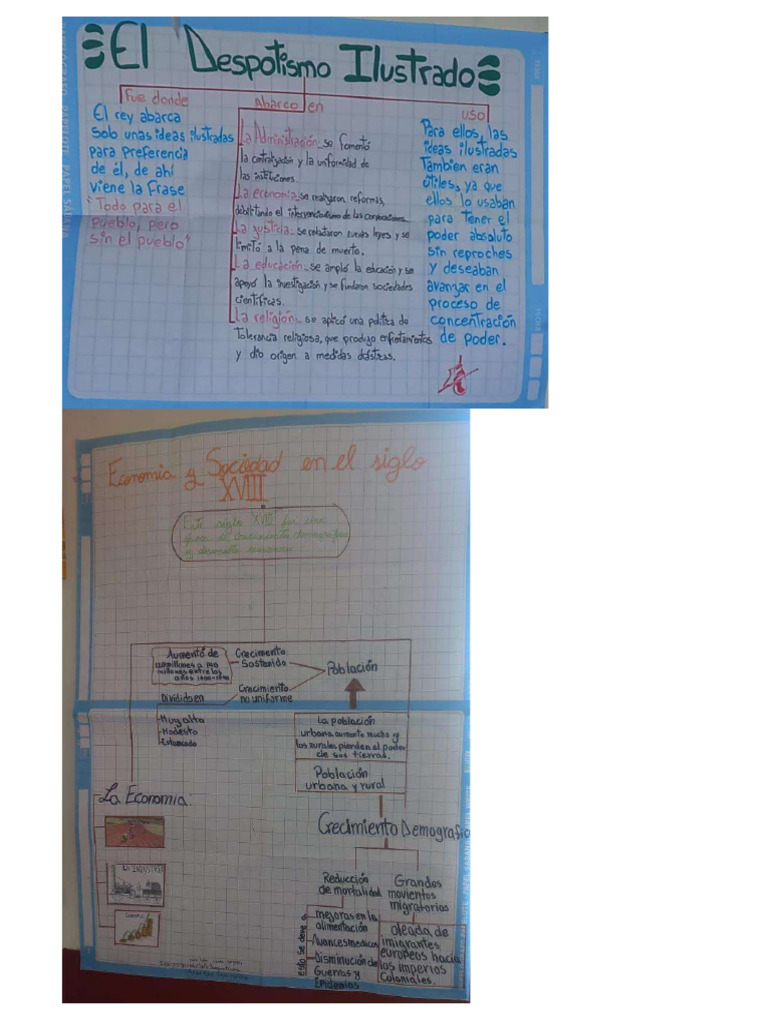 El Despotismo Ilustrado
Fue donde
El rey abarca
solo unas ideas ilustradas
para preferencia
de él, de ahí
viene la Frase
"Todo para el
pueblo, pero
sin el pueblo"
Abarco en
La Administración: se fomentó
la centralización y la uniformidad de
las instituciones.
La economía - se realizaron reformas,
debilitando el intervencionismo de las corporaciones.
La justicia - se redactaron nuevas leyes y se
limitó a la pena de muerto.
La educación - se amplió la educación y se
apoyó la investigación y se fundaron sociedades
científicas.
La religión - se aplicó una política de
Tolerancia religiosa, que produjo enfrentamientos
y dio origen a medidas drásticas.
USO
Para ellos, las
ideas ilustradas
Tambien eran
útiles, ya que
ellos lo usaban
para tener el
poder absoluto
sin reproches
y deseaban
avanzar en el
proceso de
concentración
de poder.
Economia y Sociedad en el siglo
XVIII
Este siglo XVIII fue una
época de crecimiento demografico
y desarrollo
Aumentó de
millones a 190
millones entre los
años
Crecimento
Sostenido
Población
Dividido en
Crecimiento
no uniforme
-Muy alta
-Modesto
-Estancado
La población
urbana aumenta mucho y
los rurales pierden el poder
de sus tierras.
Población
urbana y rural
La Economia
Crecimiento Demografico
Reducción
de mortalidad
Grandes
movientos
migratorios
esto se debe a
-mejoras en la
alimentación
-Avances medicos
-Disminución de
Guerras y
Epidemias
oleada de
imigrantes
europeos hacia
los imperios
Coloniales.